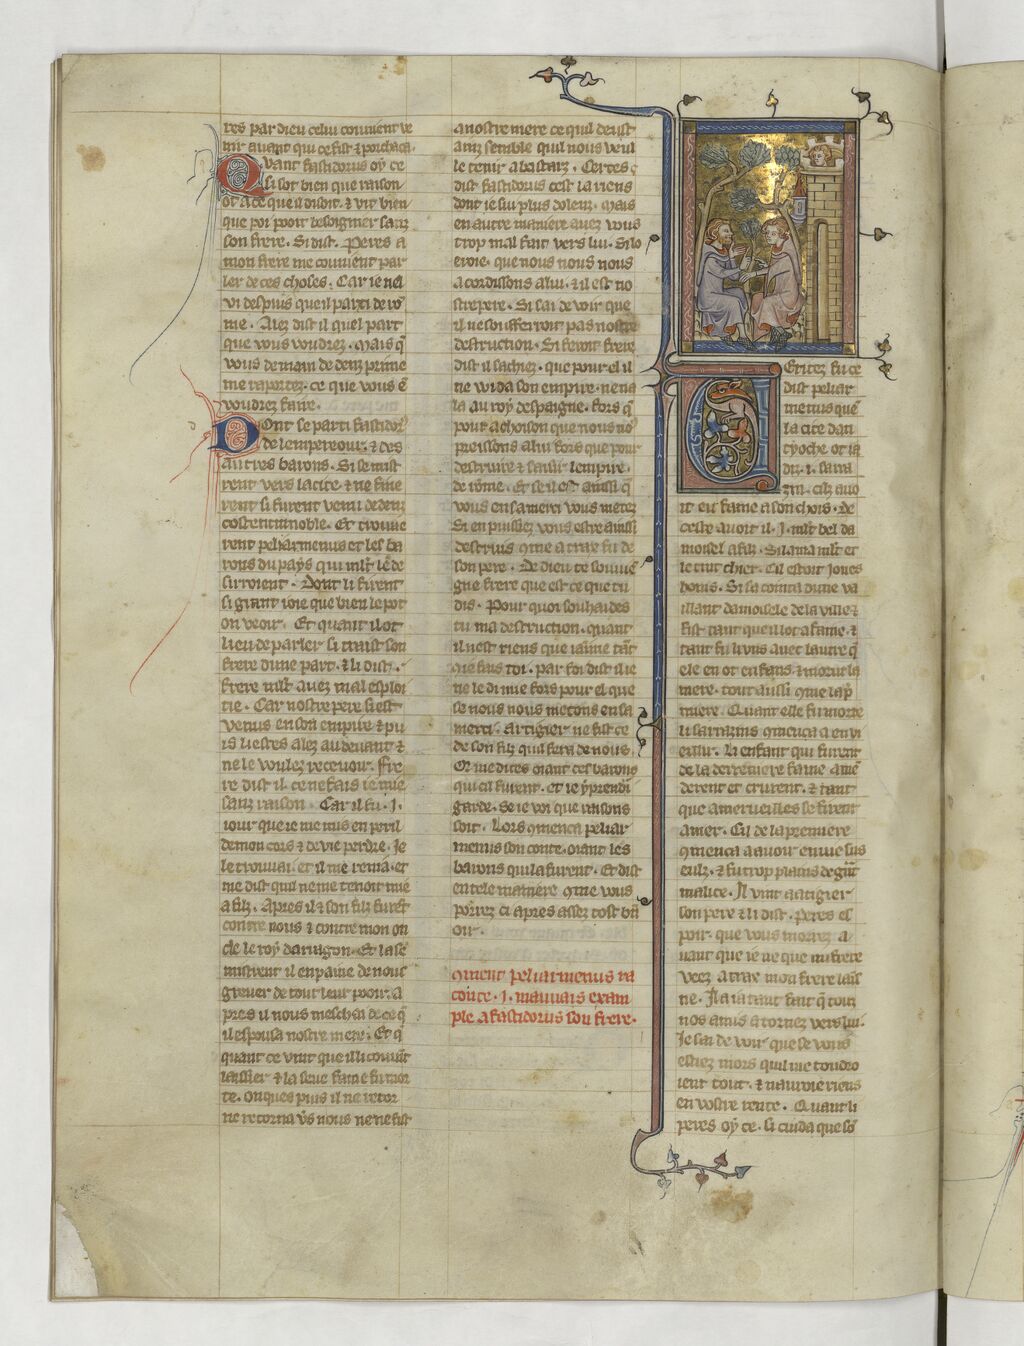 res par dieu celui couuient ve
nir auant qui ce fist & pourchaca.
Quant fastidorus oy ce
si sot bien que raison
ot a ce que il disoit. & vit bien
que poi pooit besoigner sanz
son frere. Si dist. Peres a
mon frere me couuient par
ler de ces choses. Car ie nel
vi despuis que il parti de ro
me. Alez dist il quel part
que vous voudrez. mais q̃
vous demain dedenz prime
me raportez. ce que vous ẽ
voudrez faire.
Dont se parti fastidor
de lempereour. & des
autres barons. Si se mist
rent vers la cite. & ne fine
rent si furent venu dedenz
costentinnoble. Et trouue
rent peliarmenus et les ba
rons du pays qui mlt̃ le de
siroient. Dont li firent
si grant ioie que bien le pot
on veoir. Et quant il ot
lieu de parler si traist son
frere dune part. & li dist.
frere mlt̃ auez mal esploi
tie. Car nostre pere si est
venus en son empire & pu
is li estes alez au deuant &
ne le voulez receuoir. Fre
re dist il ce ne fais ie mie
sanz raison. Car il fu .i.
iour que ie me mis en peril
de mon cors & de vie perdre. Je
le trouuai. et il me renia. et
me dist quil ne me tenoit mie
a filz. Apres il & son filz furẽt
contre nous & contre mon on
cle le roy darragon. Et la se
mistrent il en paine de nous
greuer de tout leur pooir. A
pres il nous meschei de ce q̃
il espousa nostre mere. Et q̃
quant ce vint que il li couuĩt
laissier & la seue fame fu mor
te. Onques puis il ne retor
ne retorna v̾s nous ne ne fist
a nostre mere ce quil deust
ainz semble quil nous veul
le tenir a bastarz. Certes
dist fastidorus cest la riens
dont ie sui plus dolenz. Mais
en autre maniere auez vous
trop mal fait vers lui. Si lo
eroie. que nous nous nous
acordissons a lui. & il est no
stre pere. Si sai de voir que
il ne soufferroit pas nostre
destruction. Si feroit frere
dist il sachiez. que pour el il
ne wida son empire. ne na
la au roy despaigne. fors q̃
pour achoison que nous no᷒
preissons a lui fors que pour
destruire & saisir lempire.
de rome. Et se il est ainsi q̃
vous en sa merci vous metez
Si en puissiez vous estre ainsi
destruis cõme atrax fu de
son pere. De dieu te souuiẽ
gne frere que est ce que tu
dis. Pour quoi souhaides
tu ma destruction. quant
il nest riens que iaime tãt
cõe fais toi. par foi dist il ie
ne le di mie fors pour el que
se nous nous metons en sa
merci. Artigier ne fist ce
de son filz quil fera de nous.
Or me dites oiant ces barons
qui ci furent. Et ie y prendrai
garde. Se ie voi que raisons
soit. Lors cõmenca peliar
menus son conte. oiant les
barons qui la furent. Et dist
en tele maniere cõme vous
porrez ci apres assez tost bñ
oir.
Cõment peliarmenus ra
conte .i. mauuais exam
ple a fastidorus son frere.
Veritez fu ce
dist peliar
menus que
la cite dan
tyoche ot ia
dis .i. sarra
zin. cilz auo
it eu fame a son chois. De
celle auoit il .i. mlt̃ bel da
moisel a filz. Si lama mlt̃ et
le tint chier. Cil estoit iones
hons. Si sa cointa dune va
illant damoisele de la ville &
fist tant que il lot a fame. &
tant fu li vns auec lautre q̃
ele en ot enfans. & morut la
mere. tout aussi cõme la p̃
miere. Quant elle fu morte
li sarrazins cõmenca a en vi
eillir. Li enfant qui furent
de la derreniere fame amẽ
derent et crurent. & tant
que a merueilles se firent
amer. Cil de la premiere
cõmenca a auoir enuie sus
eulz. & fu trop plains de grãt
malice. Il vint a artigier
son pere & li dist. Peres es
poir que vous morrez a
uant que ie ne que mi frere
veez atrax mon frere lais
ne. Il a ia tant fait q̃ touz
nos amis a tornez vers lui.
Je sai de voir que se vous
estiez mors quil me toudro
ient tout. & nauroie riens
en vostre rente. Quant li
peres oy ce. si cuida que sõ